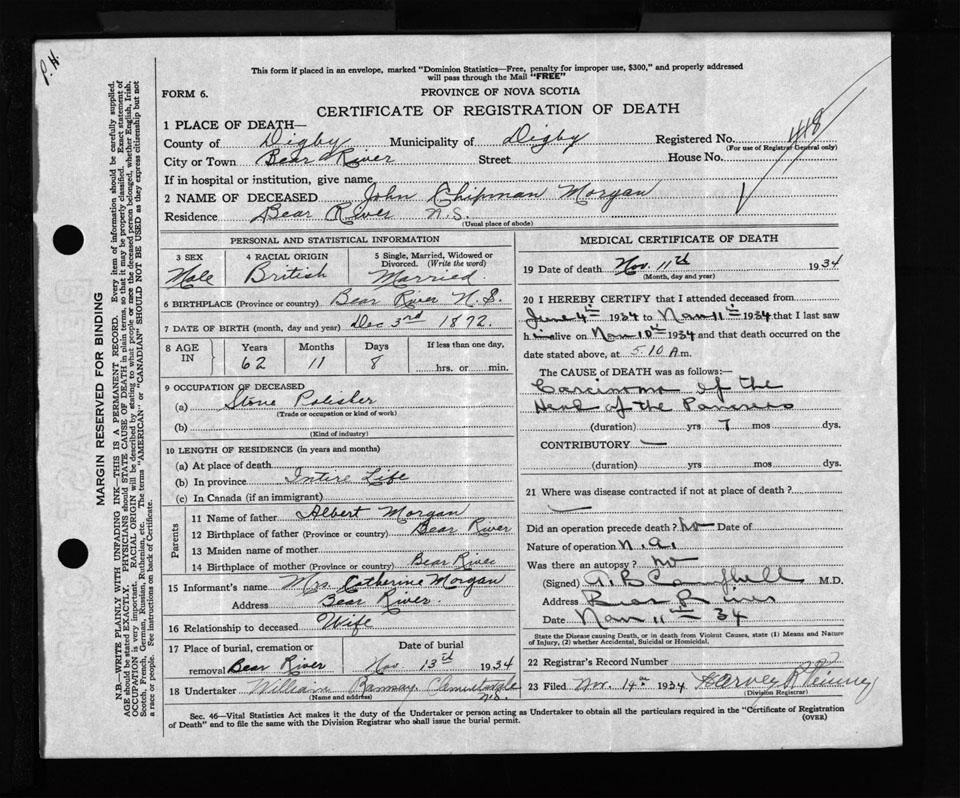 P. H.
This form if placed in an envelope, marked "Dominion Statistics—Free, penalty for improper use, $300," and properly addressed
will pass through the Mail "FREE"
FORM 6.
PROVINCE OF NOVA SCOTIA
CERTIFICATE OF REGISTRATION OF DEATH
1 PLACE OF DEATH—
County of Digby Municipality of Digby Registered No. 418
(For use of Registrar General only)
City or Town Bear River Street House No.
If in hospital or institution, give name
2 NAME OF DECEASED John Chipman Morgan
Residence Bear River N.S.
(Usual place of abode)
MARGIN RESERVED FOR BINDING
N.B.—WRITE PLAINLY WITH UNFADING INK—THIS IS A PERMANENT RECORD. Every item of information should be carefully supplied.
AGE should be stated EXACTLY. PHYSICIANS should STATE CAUSE OF DEATH in plain terms, so that it may be properly classified. Exact statement of
OCCUPATION is very important. RACIAL ORIGIN will be described by stating to what people or race the deceased person belonged, whether English, Irish,
Scotch, French, German, Russian, Ruthenian, etc. The terms "AMERICAN" or "CANADIAN" SHOULD NOT BE USED as they express citizenship but not
a race or people. See instructions on back of Certificate.
PERSONAL AND STATISTICAL INFORMATION
3 SEX 4 RACIAL ORIGIN 5 Single, Married, Widowed or
Divorced. (Write the word)
Male British Married
6 BIRTHPLACE (Province or country) Bear River N.S.
7 DATE OF BIRTH (month, day and year) Dec 3rd 1872.
8 AGE IN Years Months Days If less than one day,
62 11 8 hrs. or min.
9 OCCUPATION OF DECEASED
(a) Stone Polisher
(Trade or occupation or kind of work)
(b)
(Kind of industry)
10 LENGTH OF RESIDENCE (in years and months)
(a) At place of death
(b) In province Intire Life
(c) In Canada (if an immigrant)
Parents
11 Name of father Albert Morgan
12 Birthplace of father (Province or country) Bear River
13 Maiden name of mother
14 Birthplace of mother (Province or country) Bear River
15 Informant's name Mrs. Catherine Morgan
Address Bear River.
16 Relationship to deceased Wife
17 Place of burial, cremation or Date of burial
removal Bear River Nov. 13th 1934
18 Undertaker William Ramsay
(Name and address) N.S.
MEDICAL CERTIFICATE OF DEATH
19 Date of death Nov. 11th 1934
(Month, day and year)
20 I HEREBY CERTIFY that I attended deceased from
June 4th 1934 to Nov 11th 1934 that I last saw
him alive on Nov 10th 1934 and that death occurred on the
date stated above, at 5.10 A m.
The CAUSE OF DEATH was as follows:—
Carcinoma of the
Head of the Pancreas
(duration) yrs 7 mos dys.
CONTRIBUTORY —
(duration) yrs mos dys.
21 Where was disease contracted if not at place of death?
—
Did an operation precede death? No Date of
Nature of operation n.a.
Was there an autopsy? No
(Signed) A B Campbell M.D.
Address Bear River
Date Nov 11th 34
State the Disease causing Death, or in death from Violent Causes, state (1) Means and Nature
of Injury, (2) whether Accidental, Suicidal or Homicidal.
22 Registrar's Record Number
23 Filed Nov. 14th 1934 Harvey R
(Division Registrar)
Sec. 46—Vital Statistics Act makes it the duty of the Undertaker or person acting as Undertaker to obtain all the particulars required in the "Certificate of Registration
of Death" and to file the same with the Division Registrar who shall issue the burial permit.
(OVER)